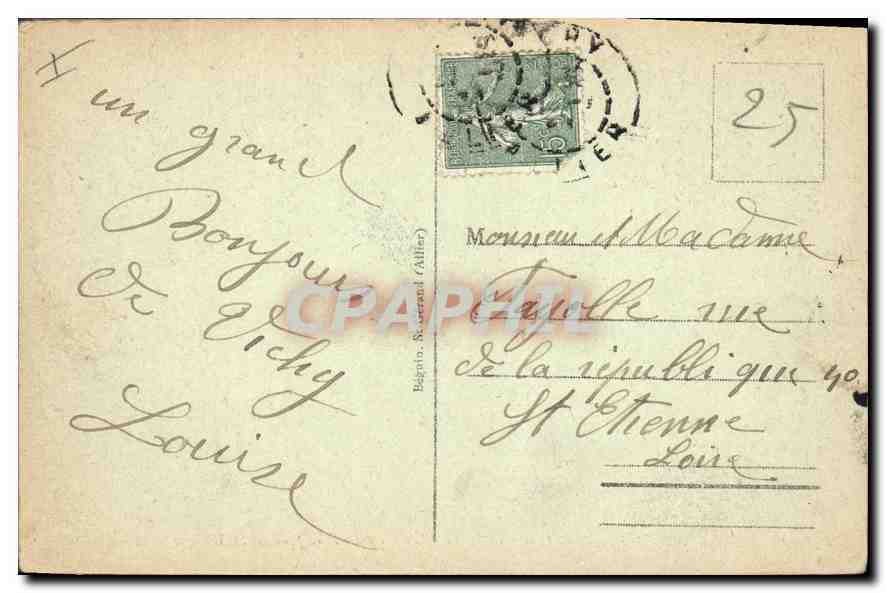 un grand
Bonjour
de Vichy
Louise
Béguin, St-Gérand (Allier)
15
25
Monsieur et Madame
Fayolle rue
de la république 40
St Etienne
Loire
CPAPHIL